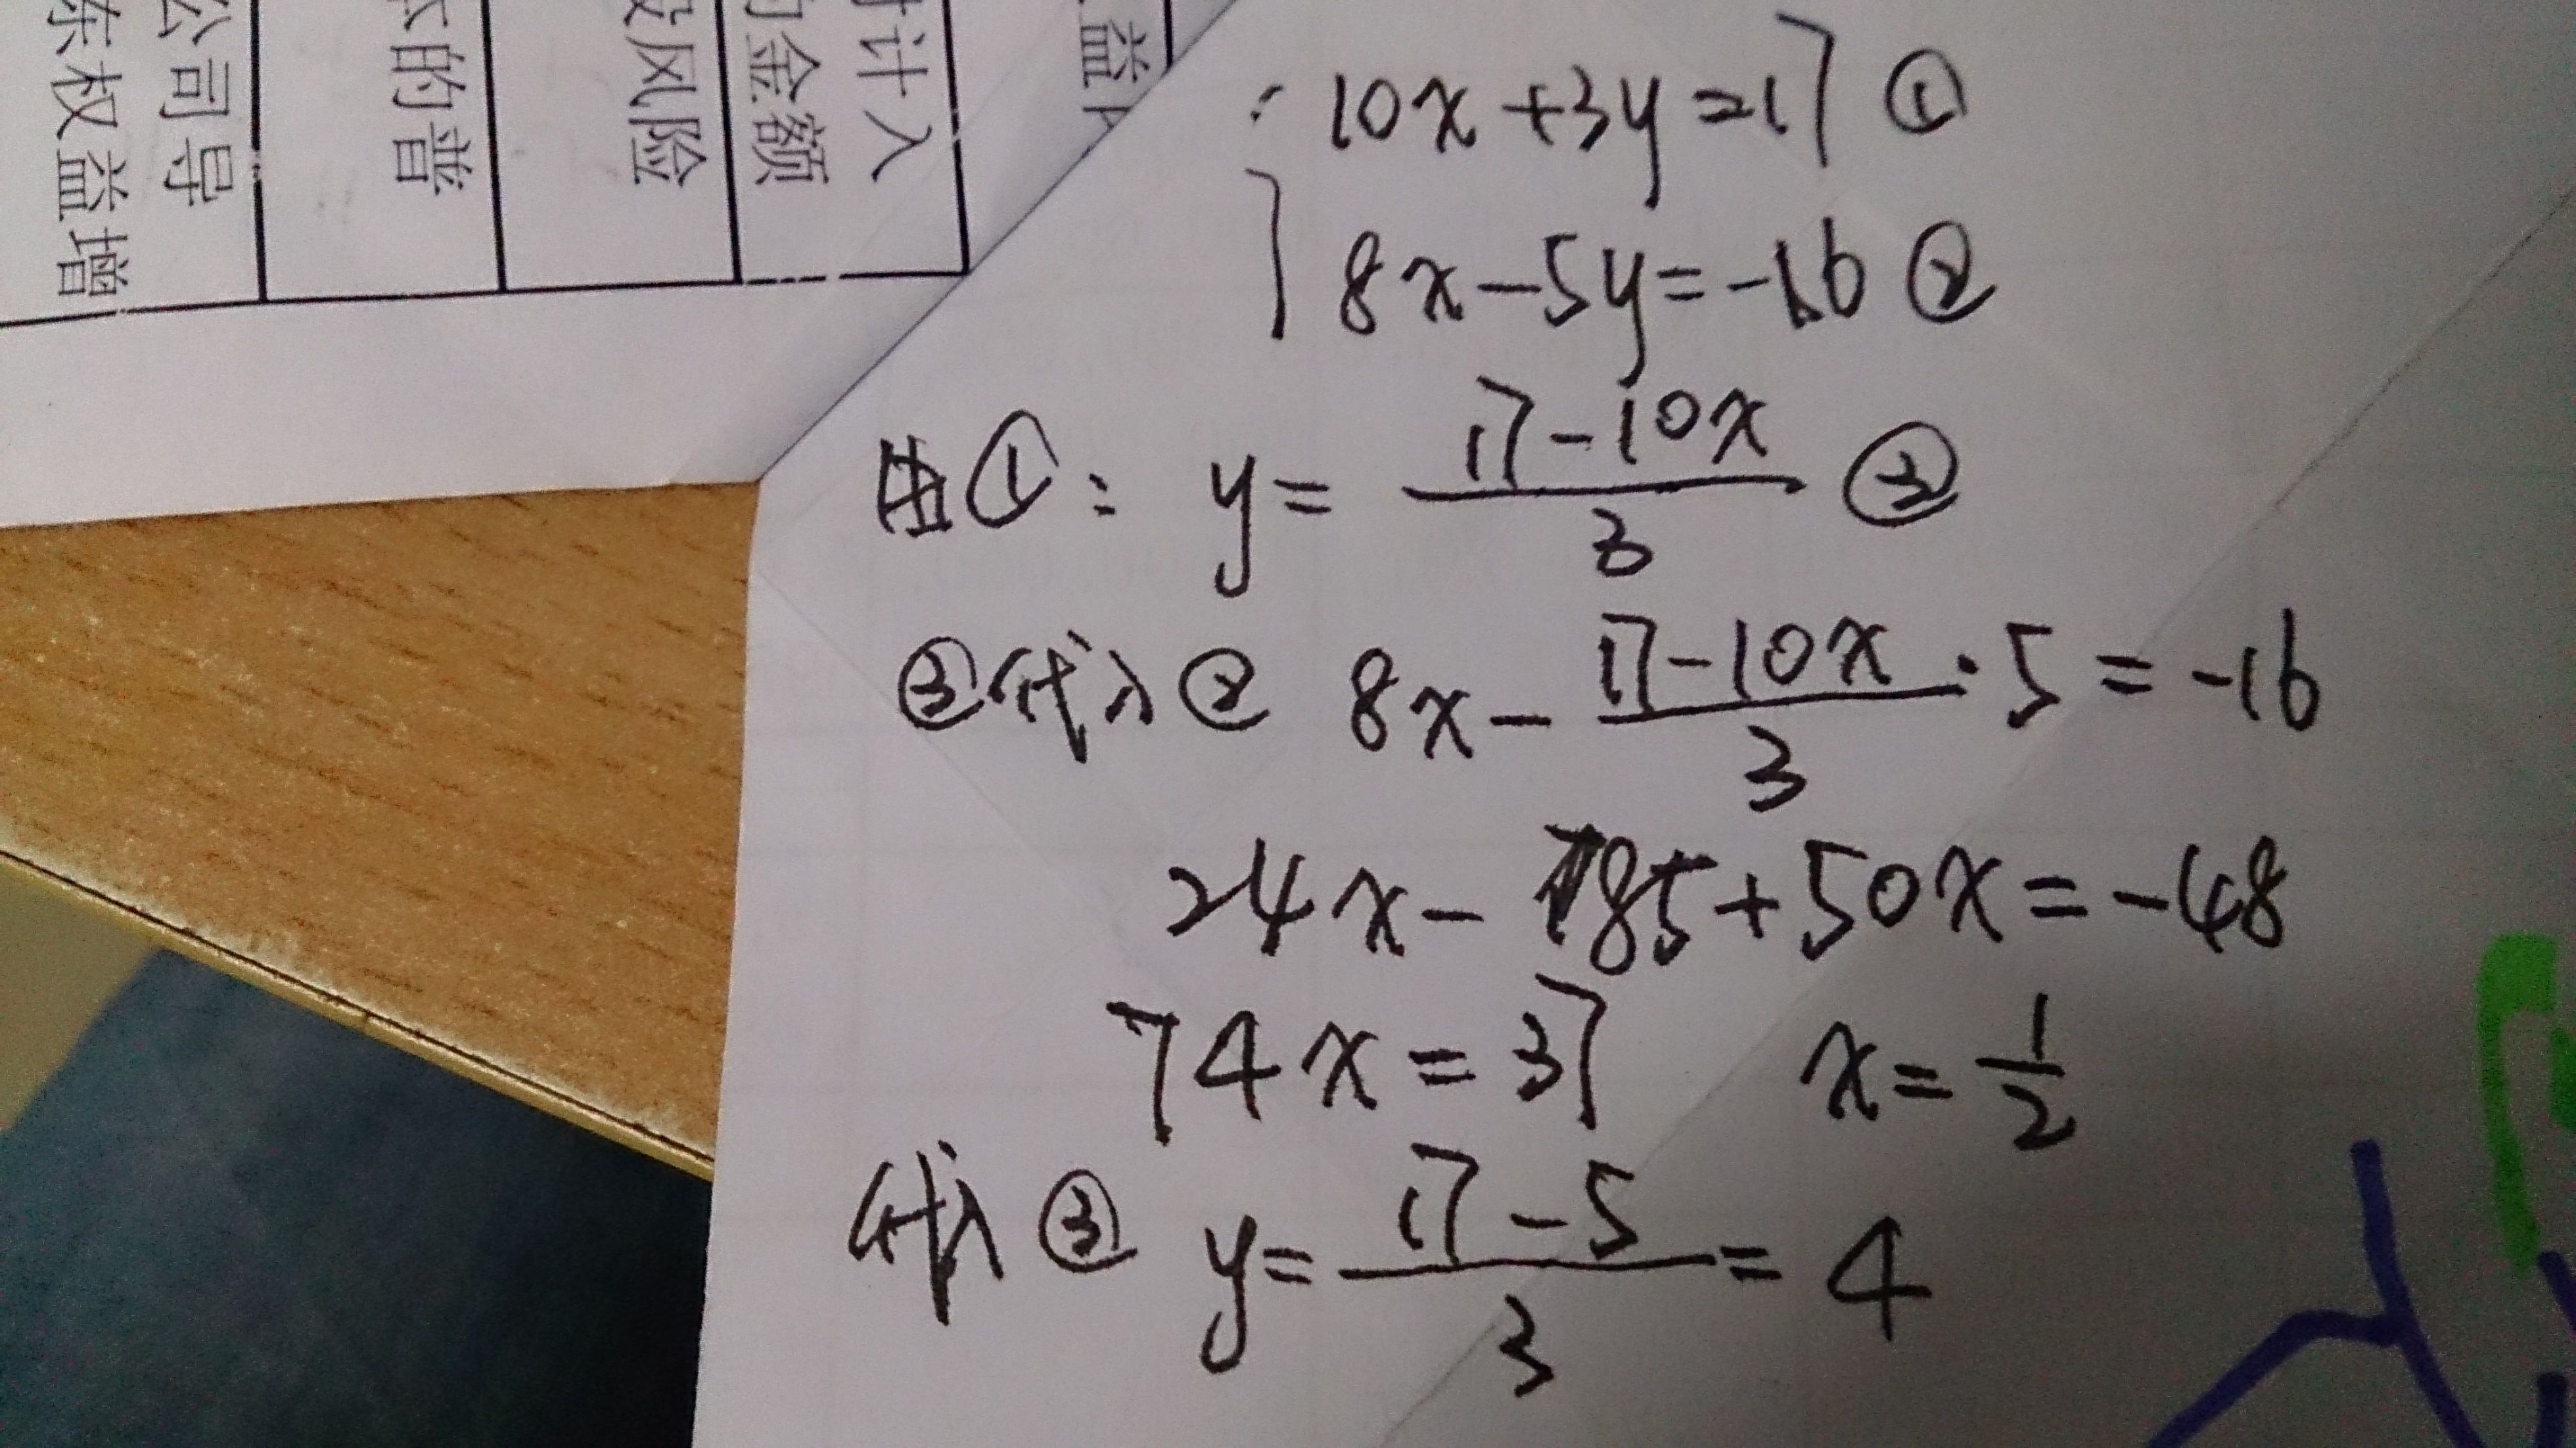 10x+3y=17 ①
8x-5y=-16 ②
由①: y= 17-10x / 3 ③
③代入② 8x- 17-10x / 3 ·5=-16
24x-85+50x=-48
74x=37 x= 1/2
代入③ y= 17-5 / 3 =4
计入
金额
风险
的普
公司导
东权益增
益